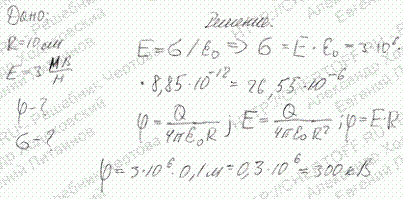 Дано:
R=10 см
E = 3 МВ/м
φ-?
σ-?
Решение.
E = σ/ε₀ => σ = E · ε₀ = 3·10⁶ ·
· 8,85·10⁻¹² = 26,55·10⁻⁶
φ = Q/4πε₀R ; E = Q/4πε₀R² ; φ = E·R
φ = 3·10⁶ · 0,1м = 0,3·10⁶ = 300 кВ